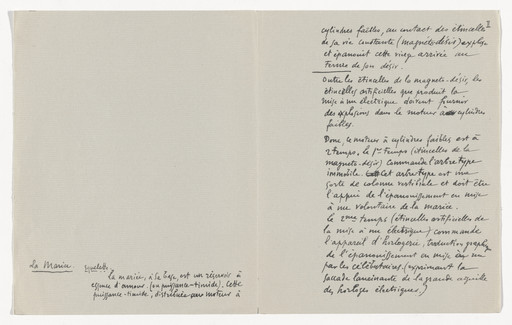 La Mariée. squelette.
la mariée, à sa base, est un réservoir à
essence d'amour. (ou puissance-timide). Cette
puissance-timide, distribuée au moteur à
II
cylindres faibles, au contact des étincelles
de sa vie constante (magnéto-désir) explose
et épanouit cette vierge arrivée au
terme de son désir.
Outre les étincelles de la magnéto-désir, les
étincelles artificielles que produit la
mise à nu électrique doivent fournir
des explosions dans le moteur à cylindres
faibles.
Donc, ce moteur à cylindres faibles est à
2 temps. le 1er temps (étincelles de la
magnéto-désir) commande l'arbre type
immobile. Cet arbre type est une
sorte de colonne vertébrale et doit être
l'appui de l'épanouissement en mise
à nu volontaire de la mariée.
Le 2me temps (étincelles artificielles de
la mise à nu électrique) commande
l'appareil d'horlogerie, traduction graphique
de l'épanouissement en mise à nu
par les célibataires. (exprimant la
saccade lancinante de la grande aiguille
des horloges électriques.)